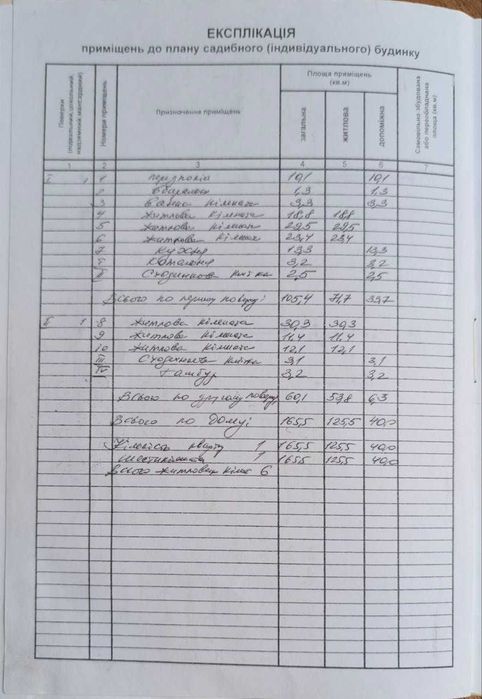 ЕКСПЛІКАЦІЯ
приміщень до плану садибного (індивідуального) будинку
Поверхи (підвальний, цокольний, надземний, мансардний)
Номери приміщень
Призначення приміщень
Площа приміщень (кв.м)
загальна
житлова
допоміжна
Самовільно збудована або переобладнана площа (кв.м)
1 2 3 4 5 6 7
І 1 1 передпокій 19,1 19,1
2 вбиральня 1,3 1,3
3 ванна кімната 3,3 3,3
4 житлова кімната 18,8 18,8
5 житлова кімната 29,5 29,5
6 житлова кімнат 23,4 23,4
7 кухня
І комалення 3,2 3,2
ІІ Сходинкова клітка 2,5 2,5
Всього по першому поверху: 105,4 71,7 33,7
ІІ 1 8 житлова кімната 30,3 30,3
9 житлова кімната 11,4 11,4
10 житлова кімната 12,1 12,1
ІІІ Сходинкова клітка 3,1 3,1
IV тамбур 3,2 3,2
Всього по другому поверху 60,1 53,8 6,3
Всього по дому: 165,5 125,5 40,0
Кількість квартир 1 165,5 125,5 40,0
шестикімнатна 1 165,5 125,5 40,0
Всього житлових кімнат 6